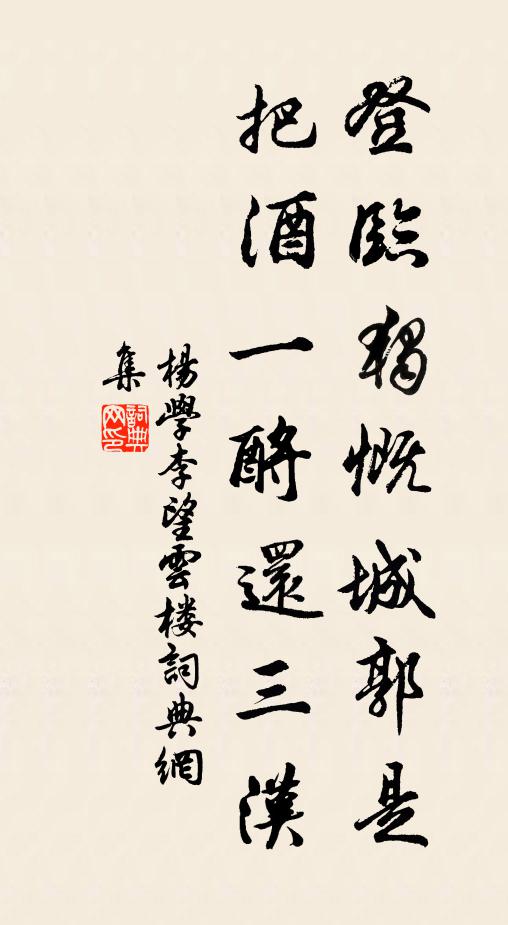 登臨獨慨城郭是
把酒一酹還三漢
楊學李望雲樓詞典網
集
詞典网印